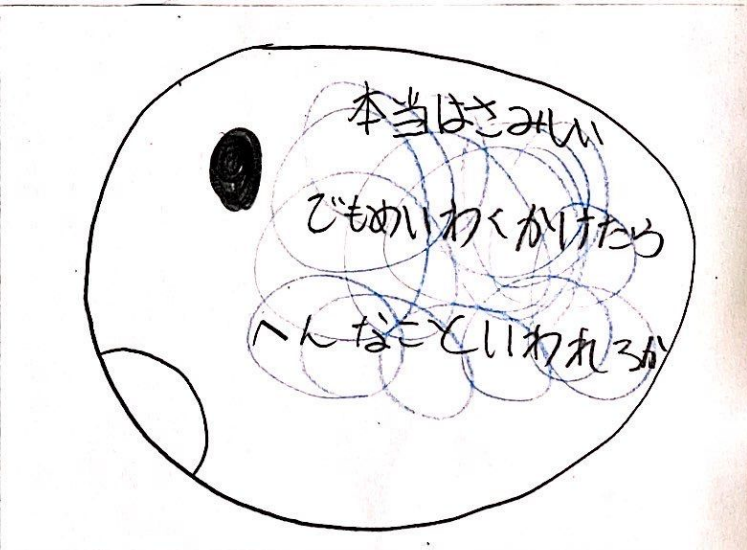 本当はさみしい
でもめいわくかけたら
へんなこといわれるか